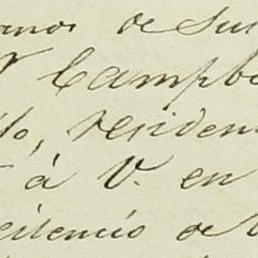 anos de Sus
Campb
to, residen
á V. en
istencio de